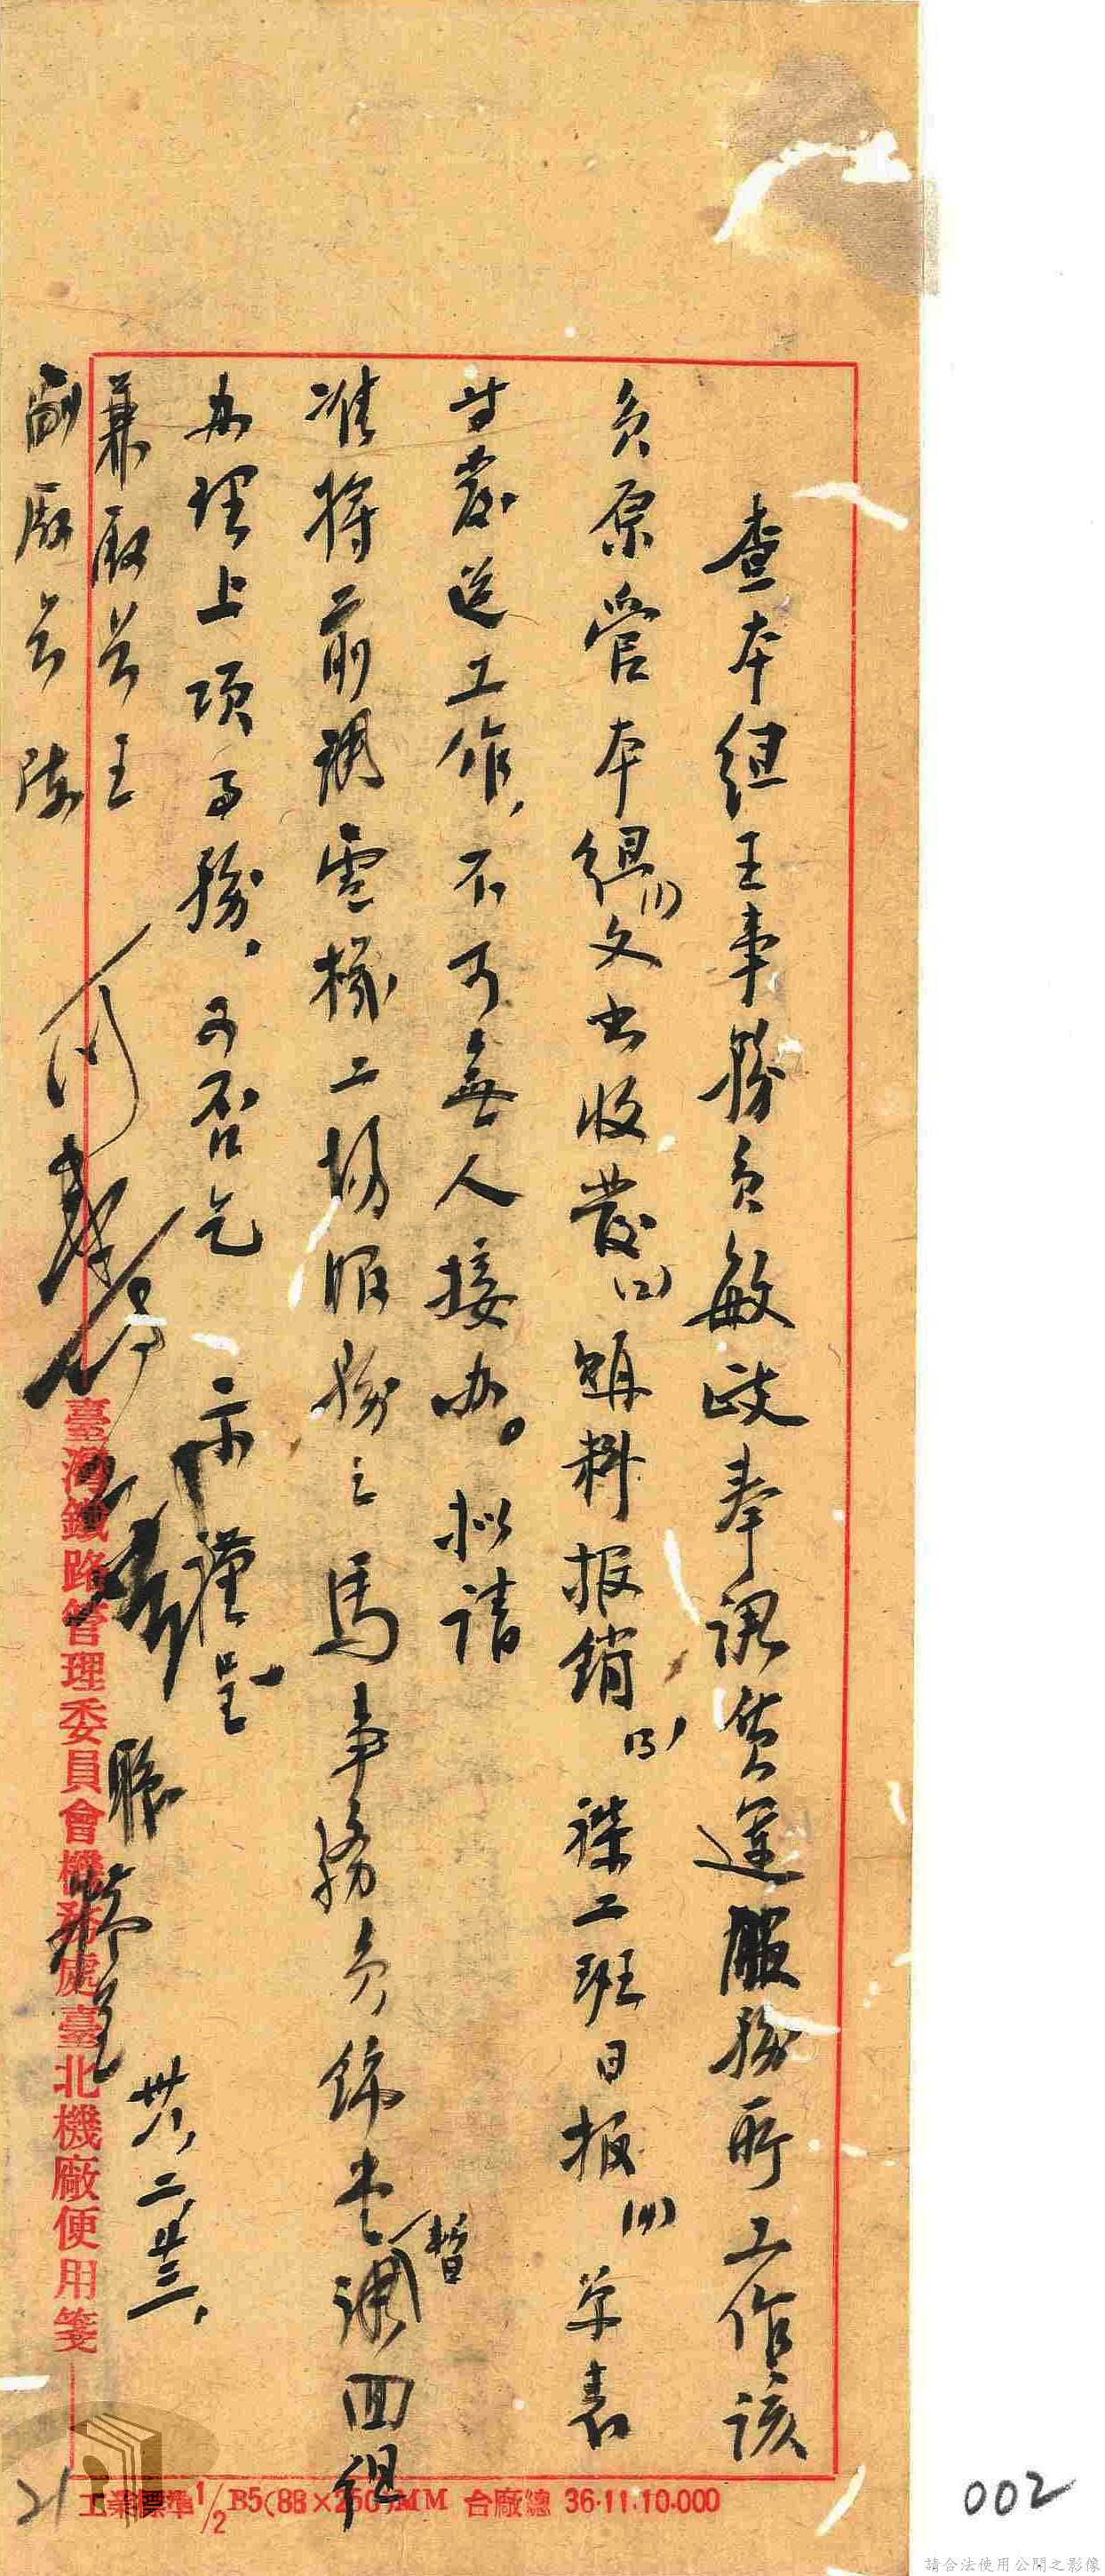 查本組王事務員敏政奉調貨運服務所工作該
員原管本組(1)文書收發(2)領料报銷(3)襍工班日报(4)单表
封發送工作,不可無人接办。拟請
准將前調電機工場服務之馬事務員錦生暫調回組
办理上項事務.可否乞 示謹呈
兼廠長王
副廠長陳
職
卅八,二,廿三,
臺灣鐵路管理委員會機務處臺北機廠便用箋
工業標準1/2B5(88×250)MM 台廠總 36·11·10.000
21
002
請合法使用公開之影像